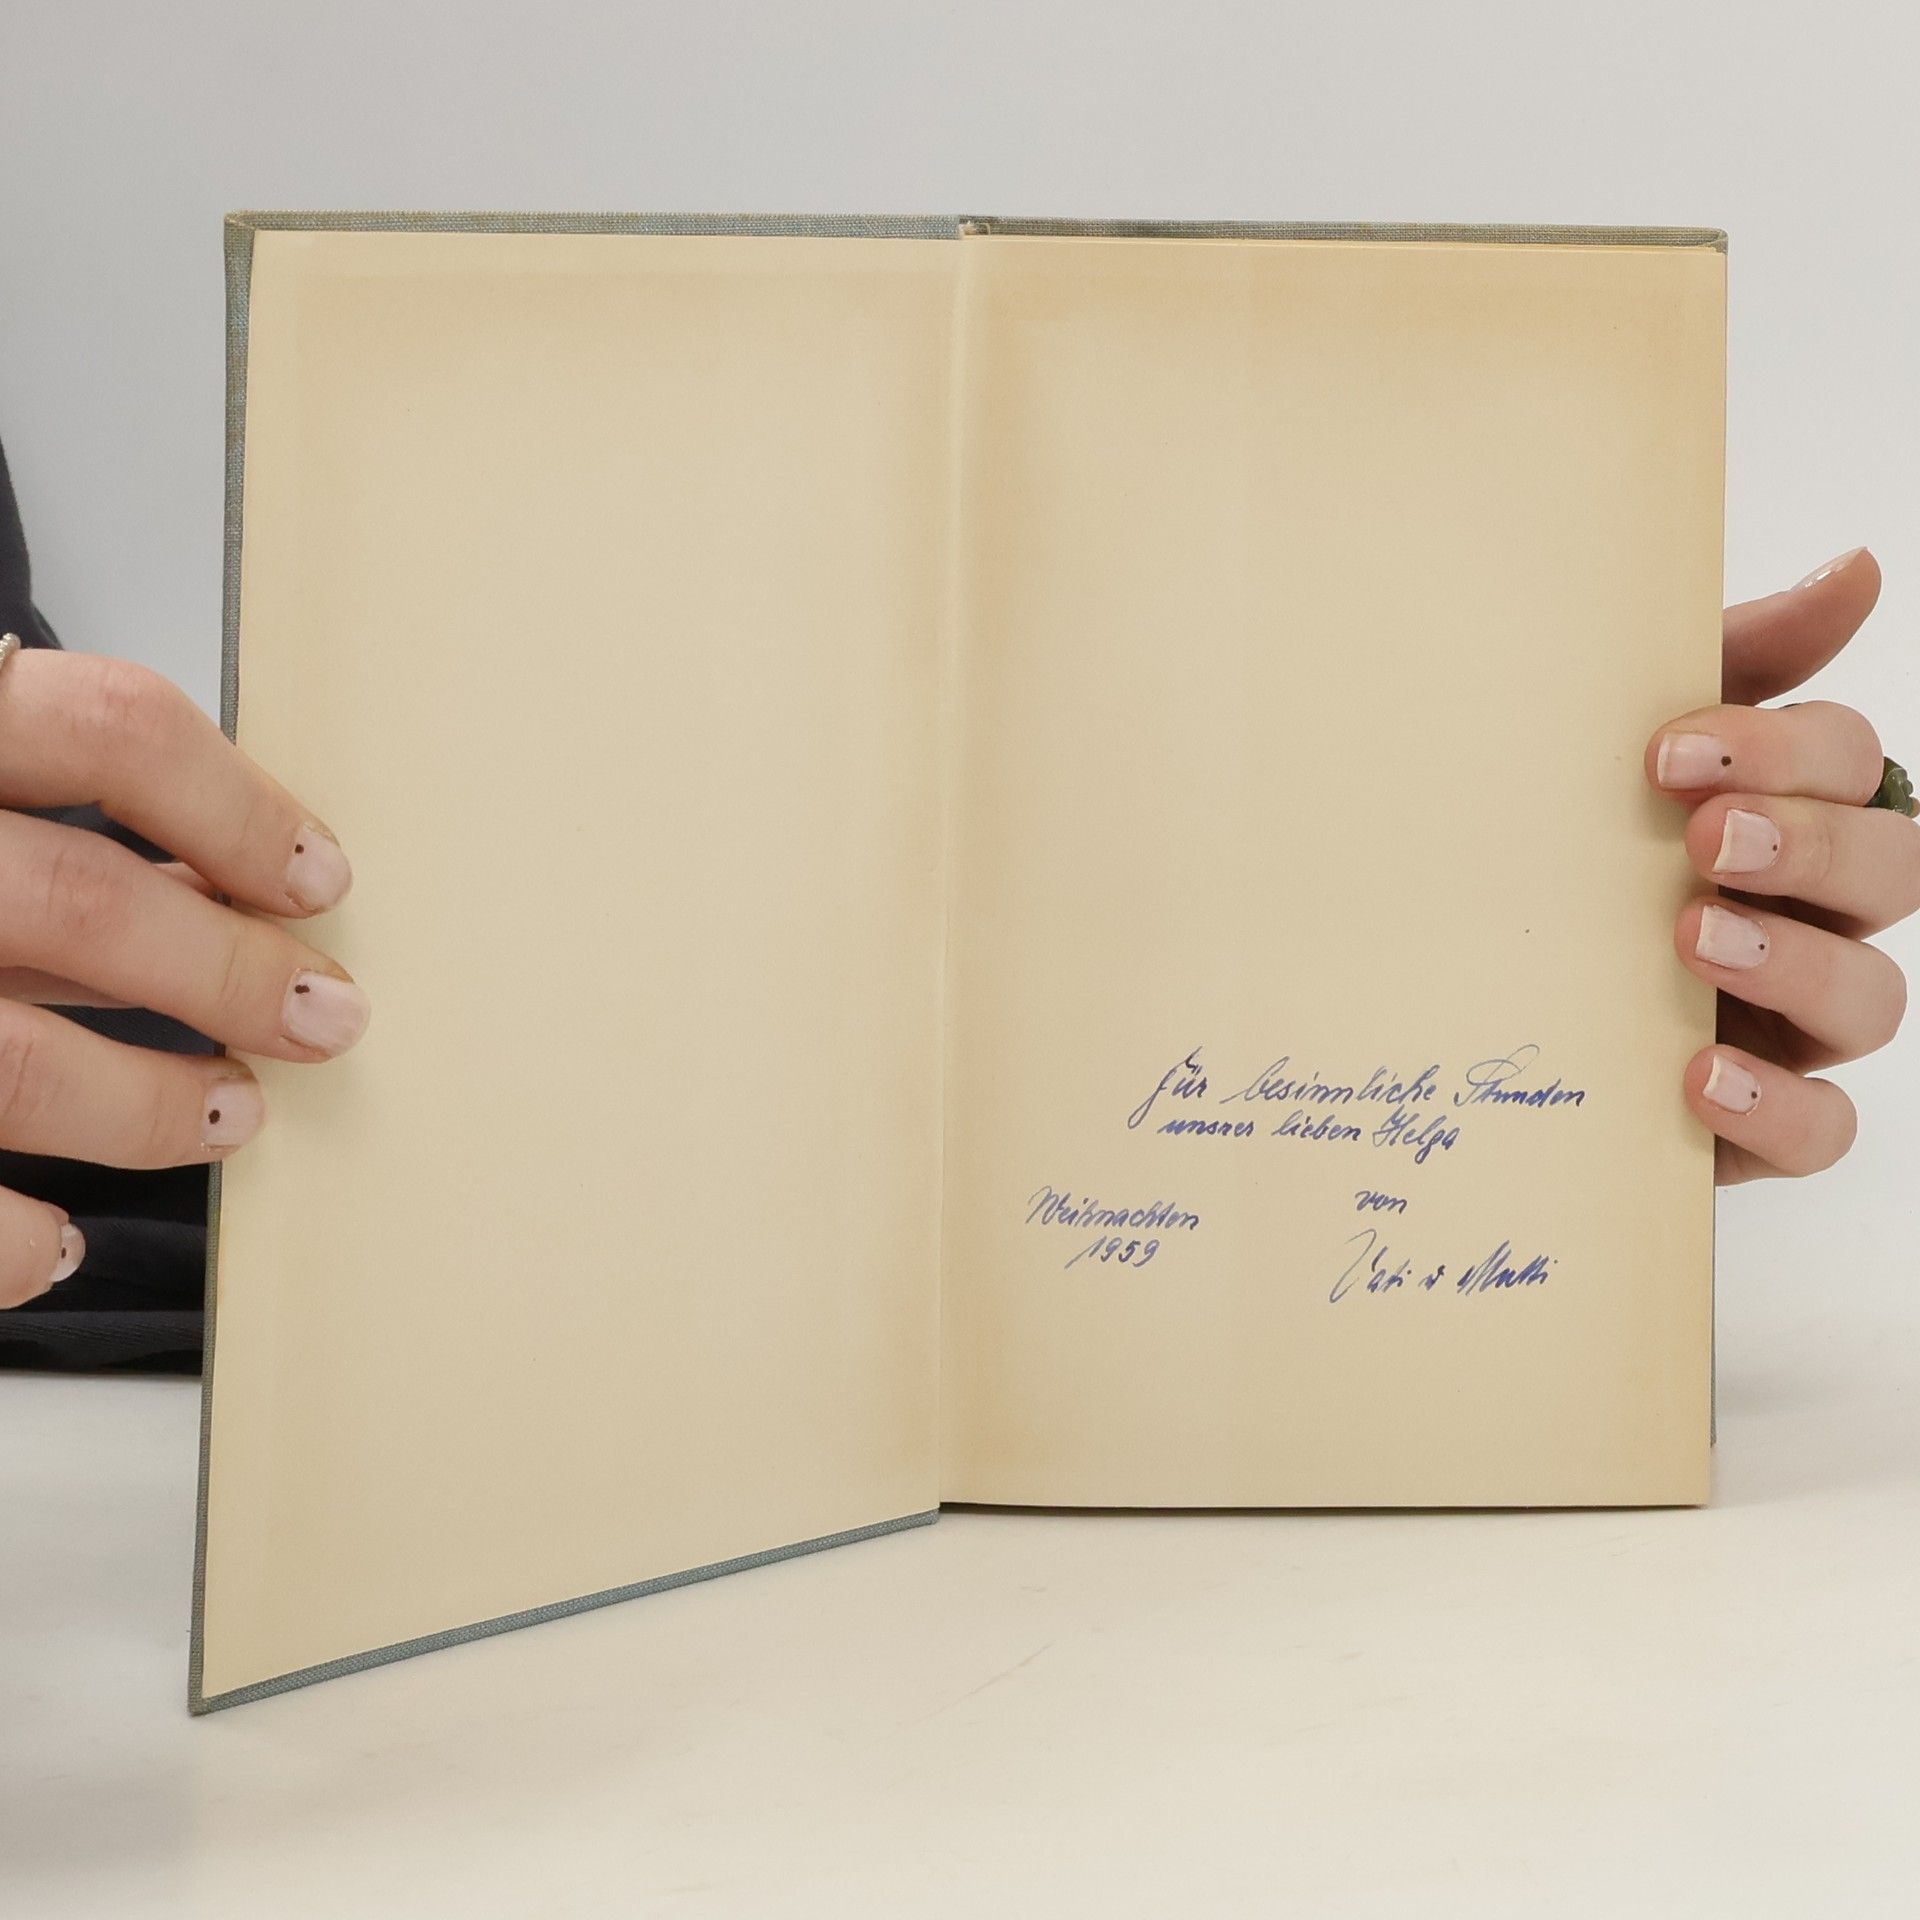 Für besinnliche Stunden
unsrer lieben Helga
Weihnachten
1959
von
Vati u Mutti